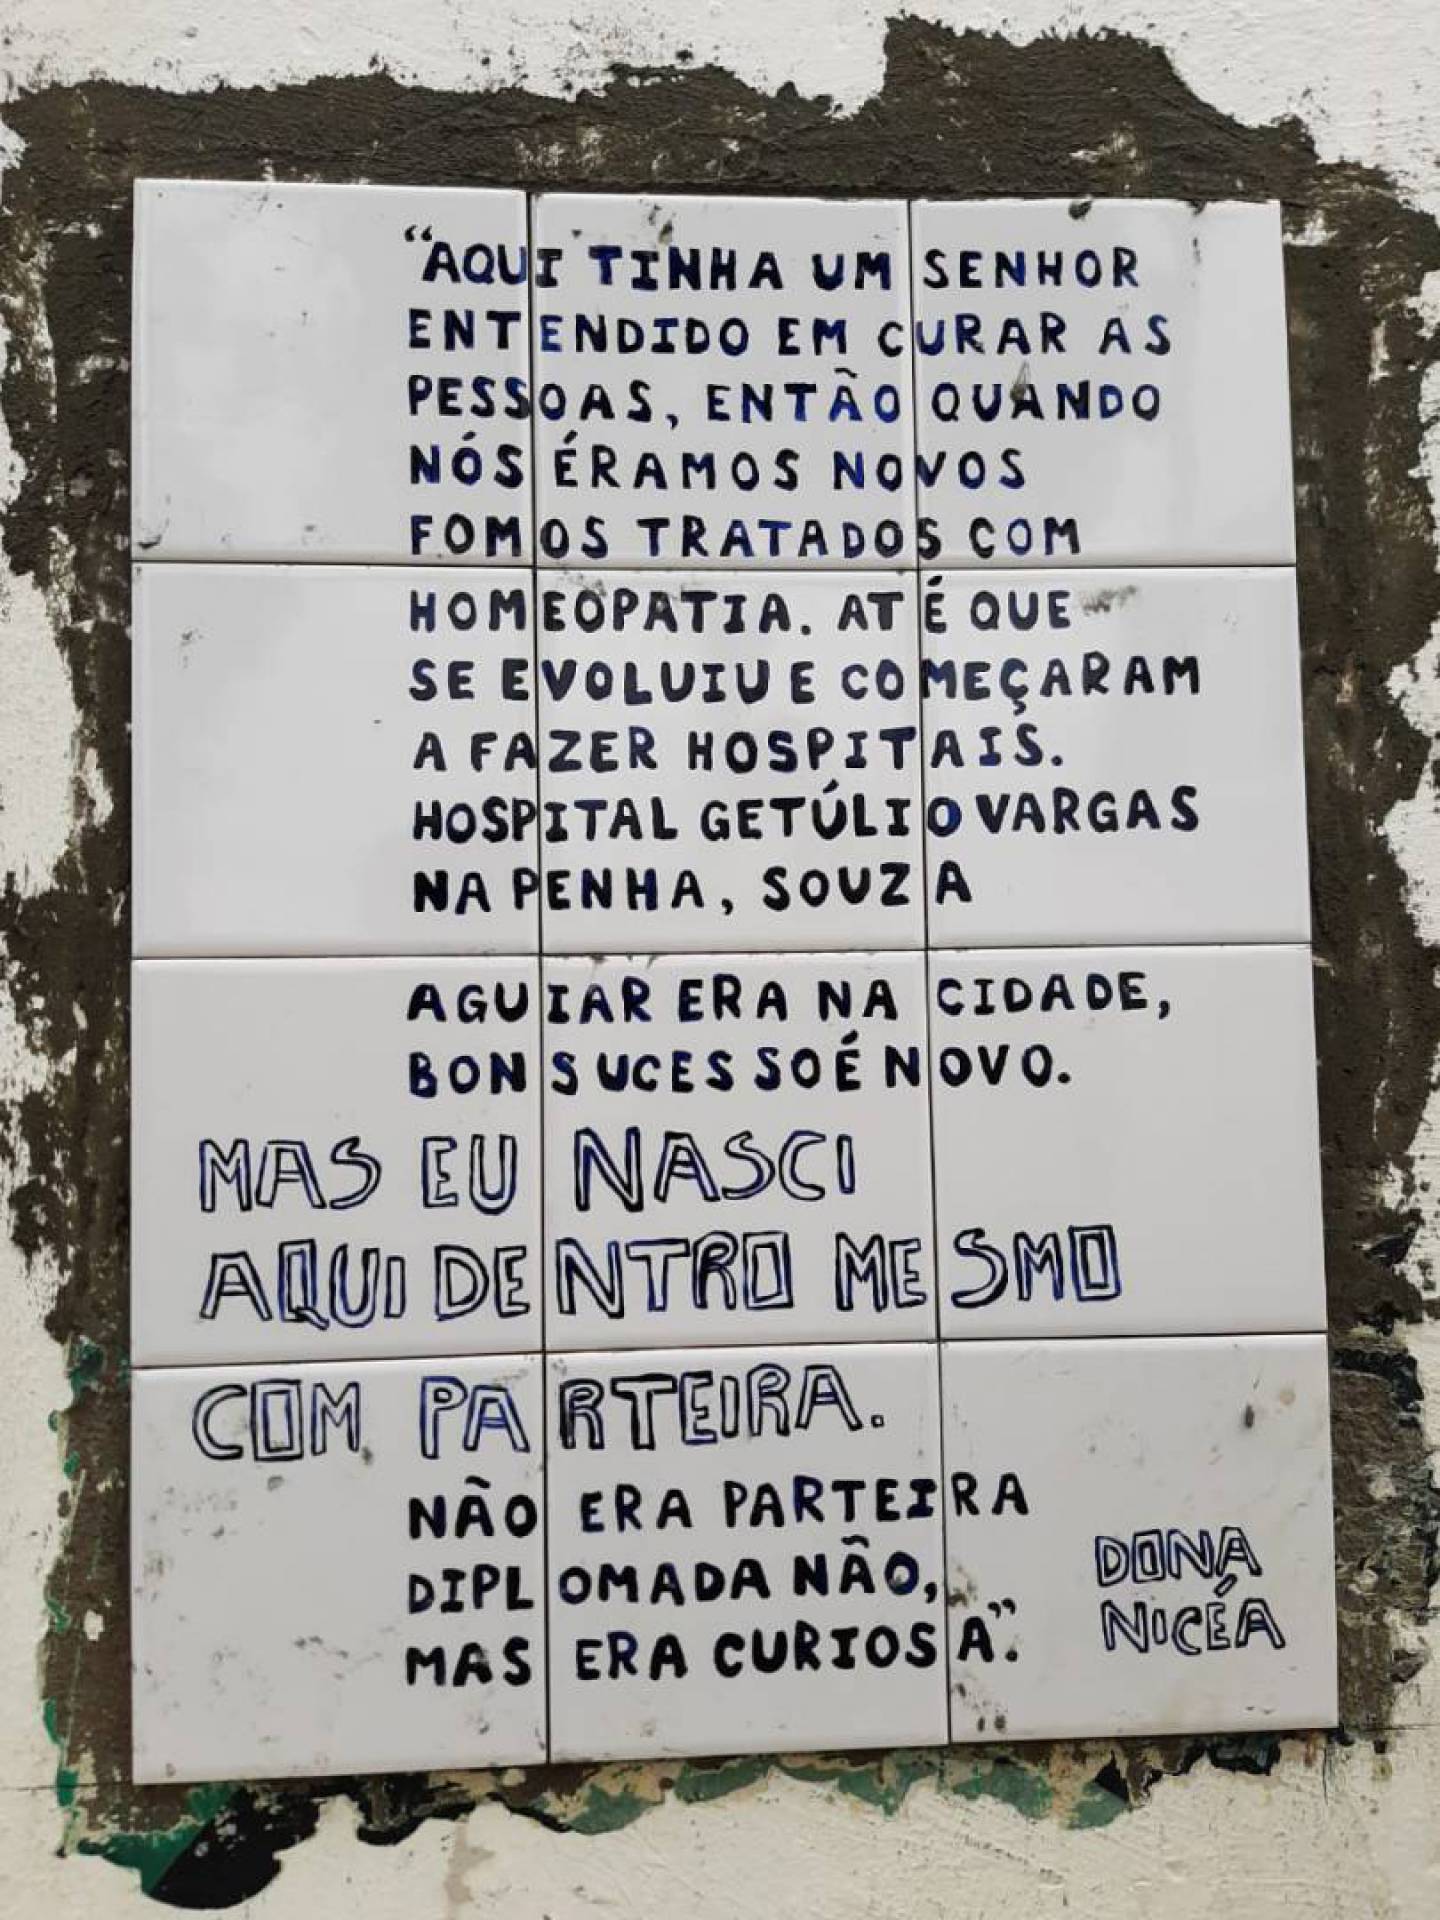 “AQUI TINHA UM SENHOR
ENTENDIDO EM CURAR AS
PESSOAS, ENTÃO QUANDO
NÓS ÉRAMOS NOVOS
FOMOS TRATADOS COM
HOMEOPATIA. ATÉ QUE
SE EVOLUIU E COMEÇARAM
A FAZER HOSPITAIS.
HOSPITAL GETÚLIO VARGAS
NA PENHA, SOUZA
AGUIAR ERA NA CIDADE,
BONSUCESSO É NOVO.
MAS EU NASCI
AQUI DENTRO MESMO
COM PARTEIRA.
NÃO ERA PARTEIRA
DIPLOMADA NÃO,
MAS ERA CURIOSA”.
DONA
NICÉA